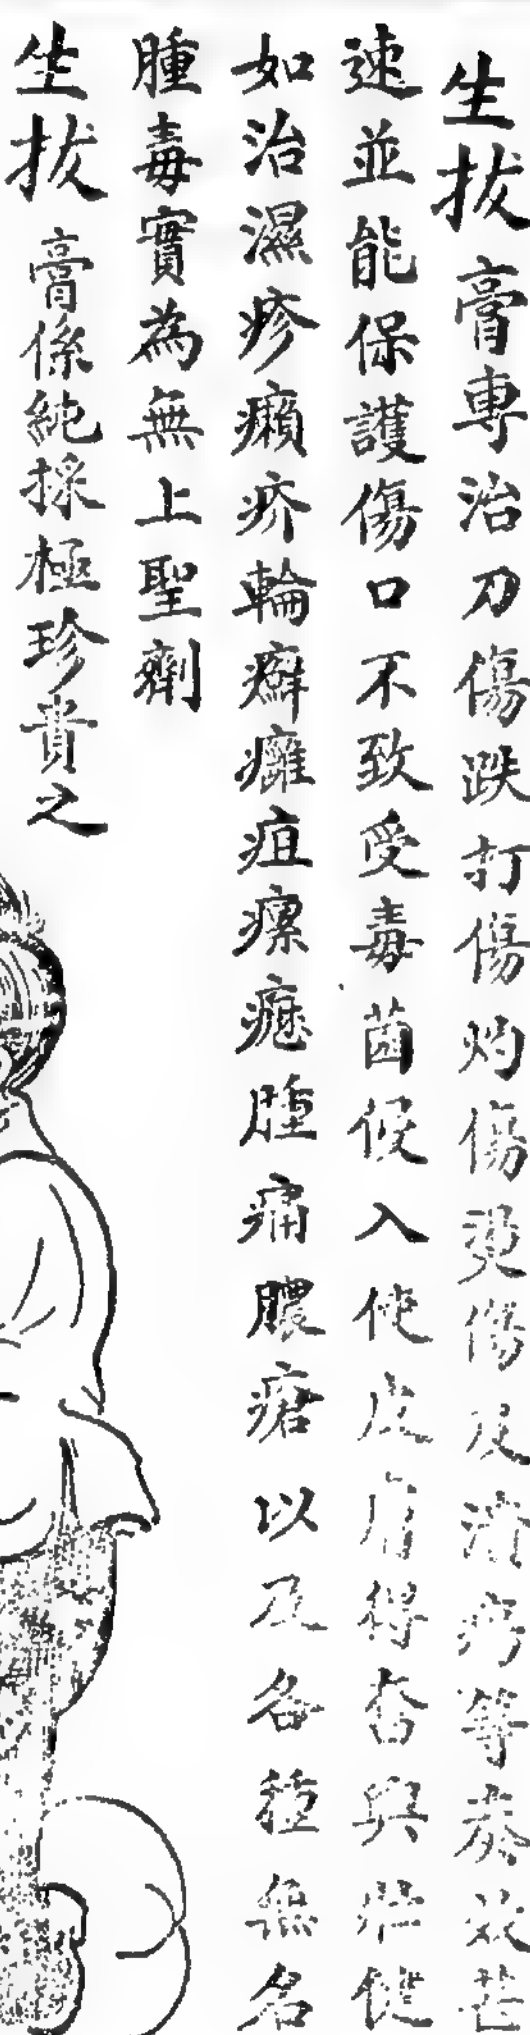 生拔膏專治刀傷跌打傷灼傷燙傷及潰瘍等奏效甚
速並能保護傷口不致受毒菌侵入使皮膚得奮興壯健
如治濕疹癩疥輪癬癰疽瘰癧腫痛膿瘡以及各種無名
腫毒實為無上聖劑
生拔膏係純採極珍貴之